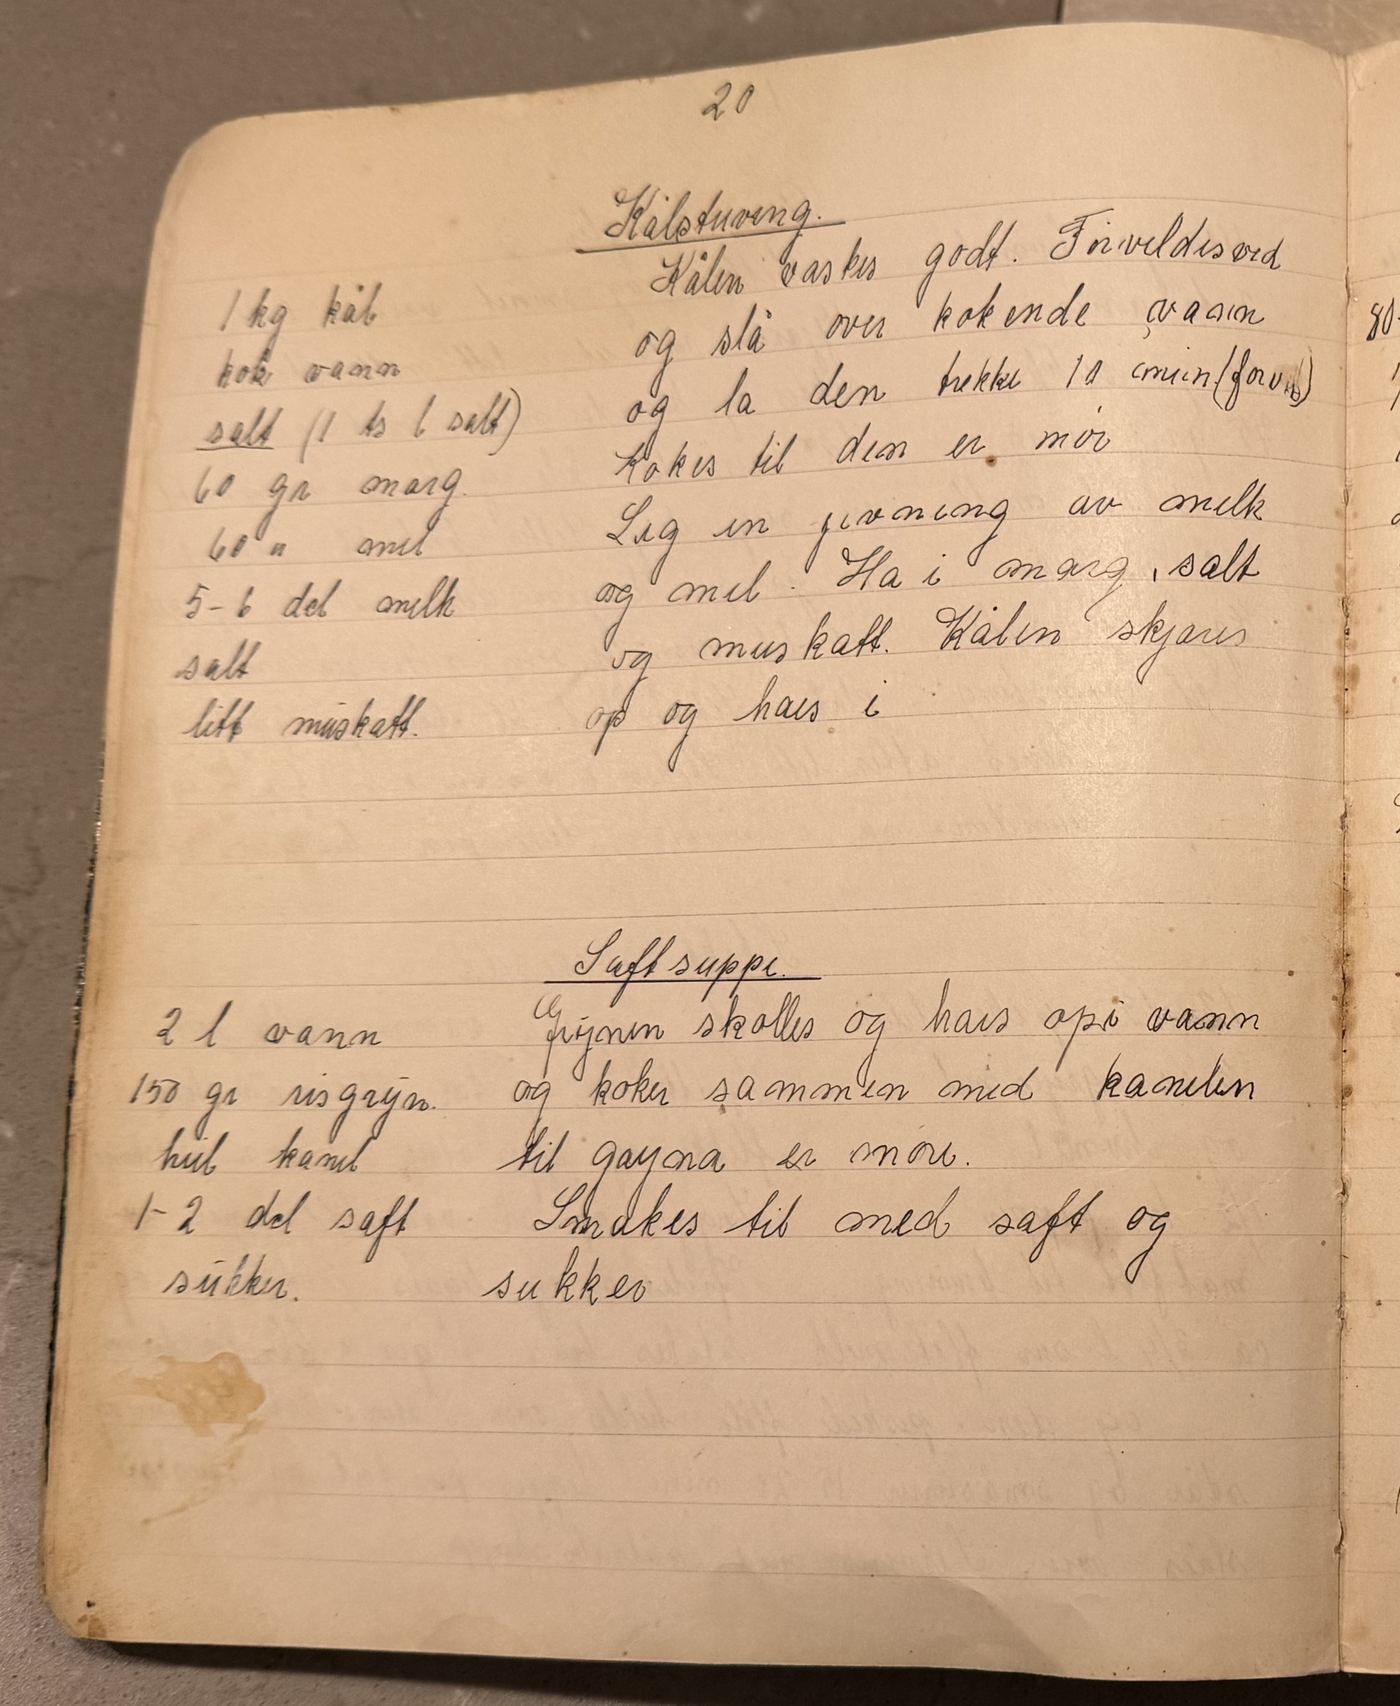 20
Kålstuving.
Kålen vaskes godt. Forvelldes ved
1 kg kål
og slå over kokende vann
kok vann
og la den trekke 10 min (forv
salt (1 ts l salt)
kokes til den er mør
60 gr marg.
Lag en jevning av melk
60 " mel
og mel. Ha i marg, salt
5-6 del melk
og muskatt. Kålen skjæres
salt
op og haes i
litt muskatt.
Saftsuppe.
2 l vann
Grynen skolles og haes opi vann
150 gr risgryn.
og koker sammen med kanelen
hel kanel
til gryna er møre.
1-2 del saft
Smakes til med saft og
sukker.
sukker
80